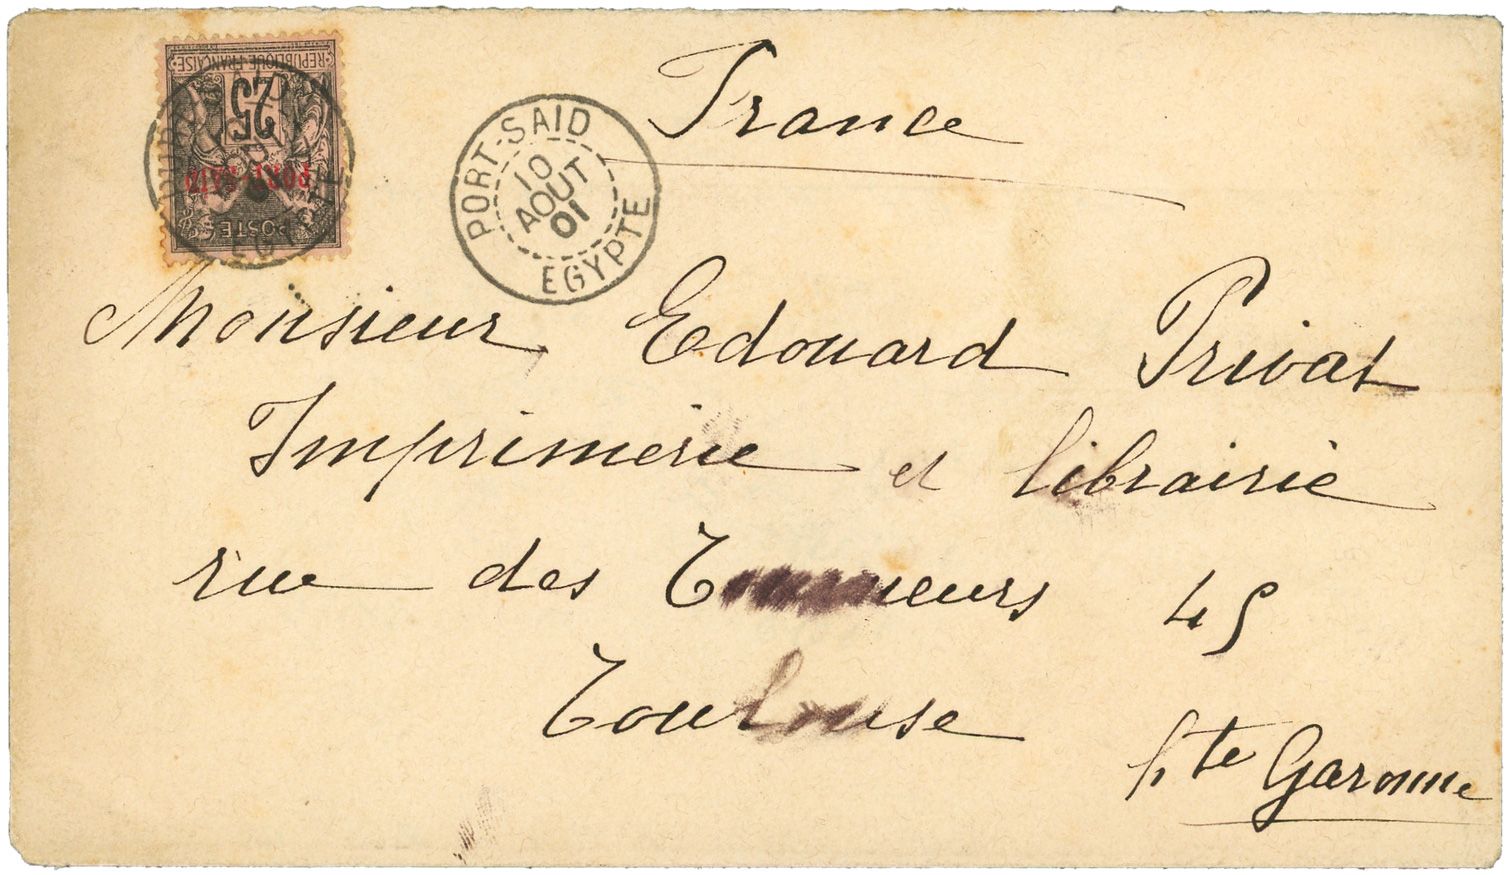 REPUBLIQUE FRANÇAISE
25
PORT-SAID
POSTES
PORT-SAID
10
AOUT
01
EGYPTE
France
Monsieur Edouard Privat
Imprimerie et librairie
rue des 45
Toulouse
Hte Garonne